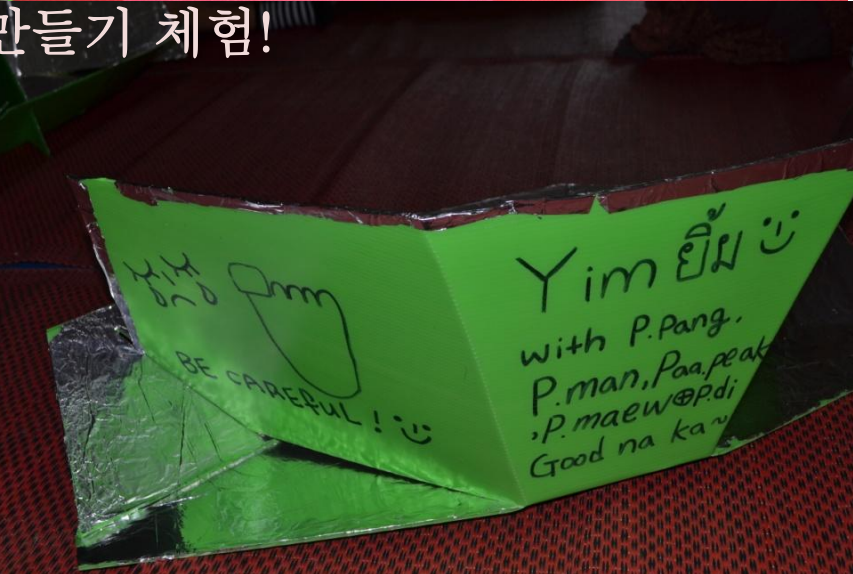 만들기 체험!
BE CAREFUL!
Yim ยิ้ม
with P.Pang,
P.man, Paa.peak
,P.maew⊕P.di
Good na ka~